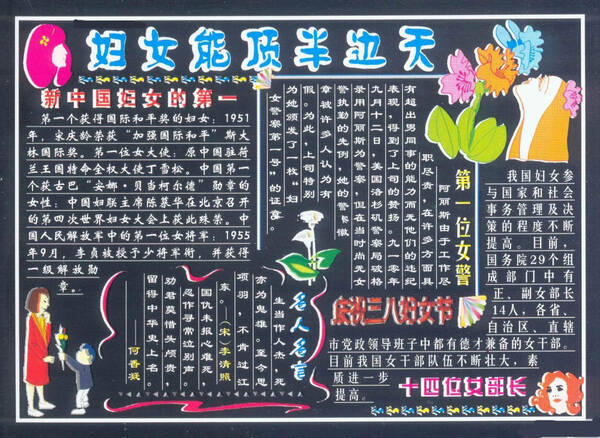 妇女能顶半边天
新中国妇女的第一
第一个获得国际和平奖的妇女：1951
年，宋庆龄荣获“加强国际和平”斯大
林国际奖。第一位女大使：原中国驻荷
兰王国特命全权大使丁雪松。中国第一
个获古巴“安娜·贝当柯尔德”勋章的
女性：中国妇联主席陈慕华在北京召开
的第四次世界妇女大会上获此殊荣。中
国人民解放军中的第一位女将军：1955
年9月，李贞被授予少将军衔，并获得
一级解放勋
章。
第一位女警
阿丽斯由于工作尽
职尽责，在许多方面具
有超出男同事的能力而无他们的违纪
表现，得到了上司的赞扬。九一〇年
九月十二日，美国洛杉矶警察局破格
录用阿丽斯为警察，但在当时尚无女
警执勤的先例，她的警徽
章被许多人认为有
假。为此，上司特别
为她颁发了一枚“妇
女警察第一号”的证章。
名人名言
生当作人杰，死
亦为鬼雄。至今思
项羽，不肯过江
东。（宋）李清照
国仇未报心难死，
忍作寻常泣别声。
劝君莫惜头颅贵，
留得中华史上名。
——何香凝
庆祝三八妇女节
我国妇女参
与国家和社会
事务管理及决
策的程度不断
提高。目前，
国务院29个组
成部门中有
正、副女部长
14人，各省、
自治区、直辖
市党政领导班子中都有德才兼备的女干部。
目前我国女干部队伍不断壮大，素
质进一步
提高。
十四位女部长